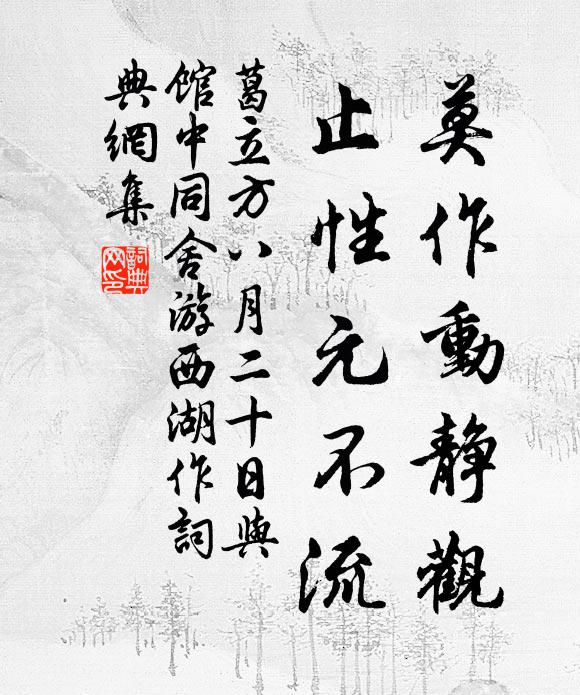 莫作動静觀
止性元不流
葛立方八月二十日與
館中同舍游西湖作詞
典網集
詞典
网印